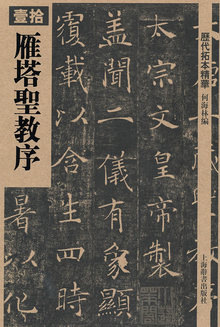 壹拾
雁塔聖教序
歷代拓本精華
何海林編
上海辭書出版社
太宗文皇帝製
蓋聞二儀有象顯
覆載以含生四時
暑以化